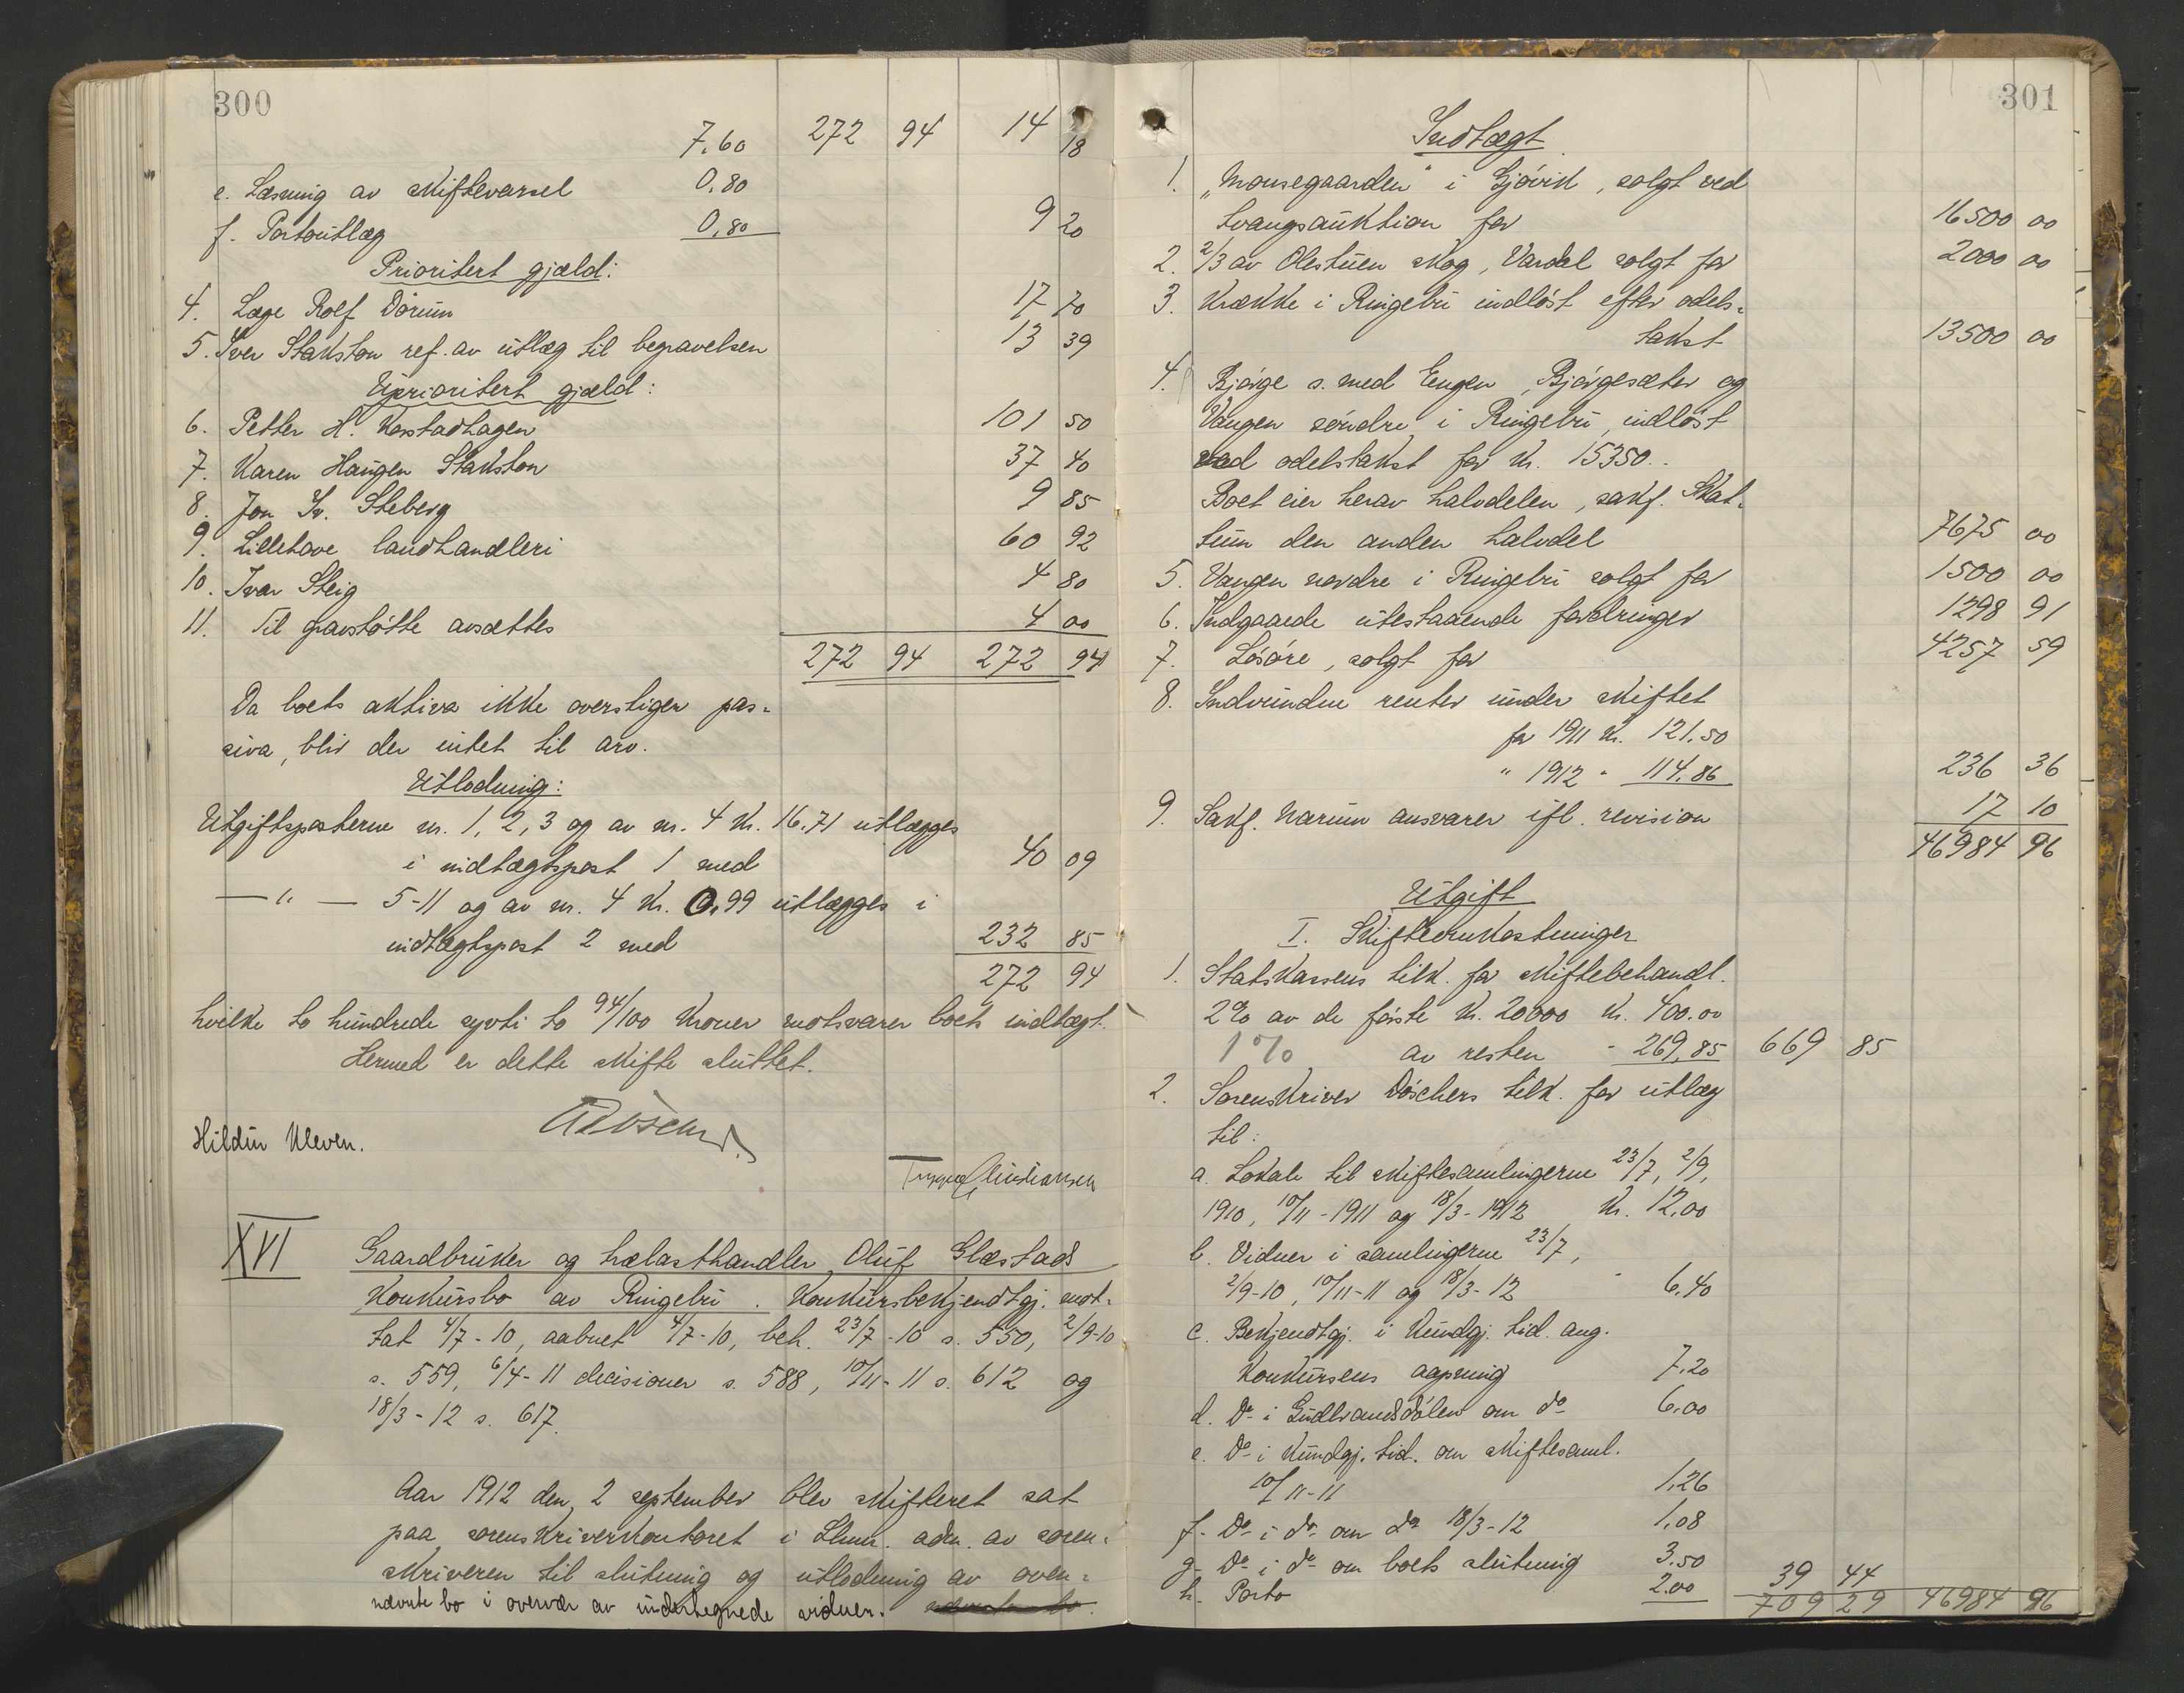 300
7.60 272 94 14 18
e. Læsning av skiftevarsel 0,80
f. Portoutlæg 0,80 9 20
Prioritert gjæld:
4. Læge Rolf Dørum 17 70
5. Iver Stakston ref. av utlæg til begravelsen 13 39
Uprioritert gjæld:
6. Petter H. Korstadhagen 101 50
7. Karen Haugen Stakston 37 40
8. Jon Iv. Steberg 9 85
9. Lillehove landhandleri 60 92
10. Ivar Steig 4 80
11. Til gravstøtte avsættes 4 00
272 94 272 94
Da boets aktiva ikke overstiger pas=
siva, blir der intet til arv.
Utlodning:
Utgiftsposterne nr. 1, 2, 3 og av nr. 4 kr. 16.71 utlægges
i indtægtspost 1 med 40 09
— " — 5-11 og av nr. 4 kr. 0.99 utlægges i
indtægtspost 2 med 232 85
272 94
hvilke to hundrede sytti to 94/100 kroner motsvarer boets indtægt.
Hermed er dette skifte sluttet.
Hildur Kleven.
Trygve Christiansen
XVI Gaardbruker og trælasthandler Oluf Glæstads
konkursbo av Ringebu. Konkursbekjendtgj. mot=
tat 4/7-10, aabnet 4/7-10, beh. 23/7-10 s. 550, 2/9-10
s. 559, 6/4-11 decisioner s. 588, 10/11-11 s. 612 og
18/3-12 s. 617.
Aar 1912 den 2 september blev skifteret sat
paa sorenskriverkontoret i Lhmr. adm. av soren=
skriveren til slutning og utlodning av oven=
nævnte bo i overvær av undertegnede vidner.
301
Indtægt
1. „Monsegaarden" i Gjøvik, solgt ved
tvangsauktion for 16500 00
2. 2/3 av Olestuen skog, Vardal solgt for 2000 00
3. Krække i Ringebu indløst efter odels=
takst 13500 00
4. Bjørge s. med Engen, Bjørgesæter og
Vangen søndre i Ringebu, indløst
ved odelstakst for kr. 15350..
Boet eier herav halvdelen, sakf. Skat=
tum den anden halvdel 7675 00
5. Vangen nordre i Ringebu solgt for 1500 00
6. Indgaaede utestaaende fordringer 1298 91
7. Løsøre, solgt for 4257 59
8. Indvundne renter under skiftet
for 1911 kr. 121.50
" 1912 " 114,86 236 36
9. Sakf. Narum ansvarer ifl. revision 17 10
46984 96
Utgift
I. Skifteomkostninger
1. Statskassens tilk. for skiftebehandl.
2% av de første kr. 20000 kr. 400.00
1% av resten - 269,85 669 85
2. Sorenskriver Døschers tilk. for utlæg
til:
a. Lokale til skiftesamlingerne 23/7, 2/9,
1910, 10/11-1911 og 18/3-1912 kr. 12,00
b. Vidner i samlingerne 23/7,
2/9-10, 10/11-11 og 18/3-12 " 6,40
c. Bekjendtgj. i Kundgj. tid. ang.
konkursens aapning 7,20
d. Do i Gudbrandsdølen om do 6,00
e. Do i Kundgj. tid. om skiftesaml.
10/11-11 1,26
f. Do i do om do 18/3-12 1,08
g. Do i do om boets slutning 3.50
h. Porto 2.00 39 44
709 29 46984 96